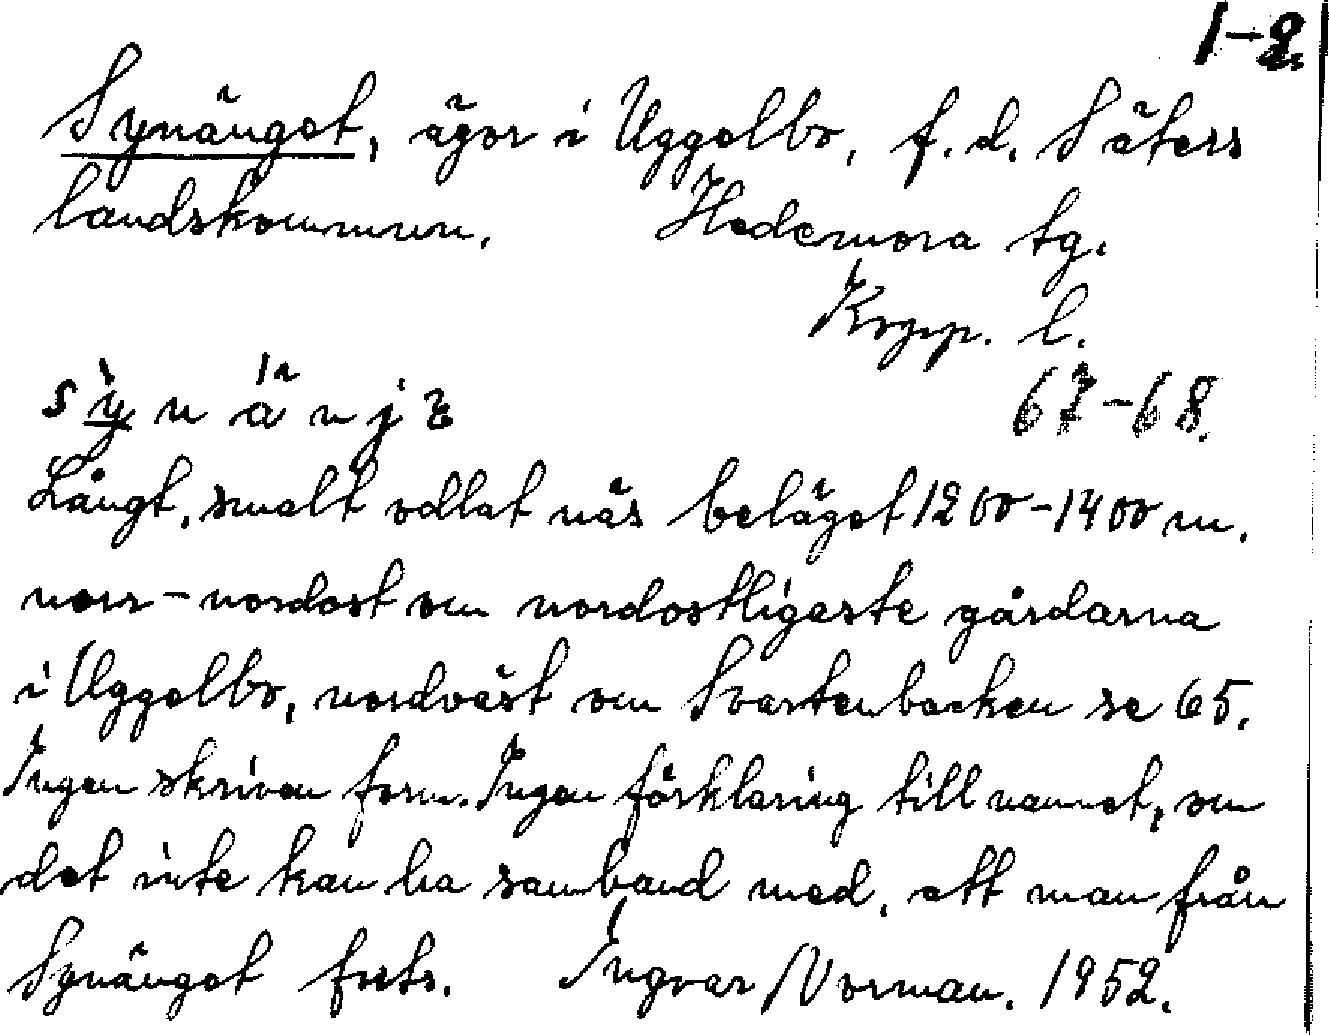 1-2.
Synänget, ägor i Uggelbo, f.d. Säters
landskommun. Hedemora tg.
Kopp. l.
67-68.
Långt, smalt odlat näs beläget 1200-1400 m.
norr-nordost om nordostligaste gårdarna
i Uggelbo, nordväst om Svartenbacken se 65.
Ingen skriven form. Ingen förklaring till namnet, om
det inte kan ha samband med, att man från
Synänget forts. Ingvar Norman. 1952.